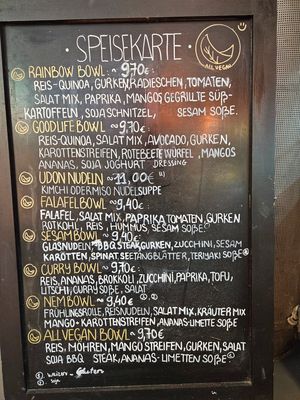 ALL VEGAN
· SPEISEKARTE ·
RAINBOW BOWL ~ 9,70€:
REIS-QUINOA, GURKEN, RADIESCHEN, TOMATEN,
SALAT MIX, PAPRIKA, MANGOS GEGRILLTE SÜß-
KARTOFFELN, SOJASCHNITZEL, SESAM SOßE.
GOODLIFE BOWL ~ 9,70€:
REIS-QUINOA, SALAT MIX, AVOCADO, GURKEN,
KAROTTENSTREIFEN, ROTE BEETE WÜRFEL, MANGOS
ANANAS, SOJA JOGHURT DRESSING
UDON NUDELN ~ 11,00€
KIMCHI ODER MISO NUDELSUPPE
FALAFEL BOWL ~ 9,40€:
FALAFEL, SALAT MIX, PAPRIKA, TOMATEN, GURKEN
ROTKOHL, REIS, HUMMUS, SESAM SOßE
SESAM BOWL ~ 9,40€:
GLASNUDELN, BBQ STEAK, GURKEN, ZUCCHINI, SESAM
KAROTTEN, SPINAT, SEETANGBLÄTTER, TERIYAKI SOßE
CURRY BOWL ~ 9,70€:
REIS, ANANAS, BROKKOLI, ZUCCHINI, PAPRIKA, TOFU,
LITSCHI, CURRY SOßE, SALAT
NEM BOWL ~ 9,40€
FRÜHLINGSROLLE, REISNUDELN, SALAT MIX, KRÄUTER MIX
MANGO + KAROTTENSTREIFEN, ANANAS-LIMETTE SOßE
ALLVEGAN BOWL ~ 9,70€:
REIS, MÖHREN, MANGO STREIFEN, GURKEN, SALAT
SOJA BBQ STEAK, ANANAS-LIMETTEN SOßE
1. weizen - gluten
2. soja